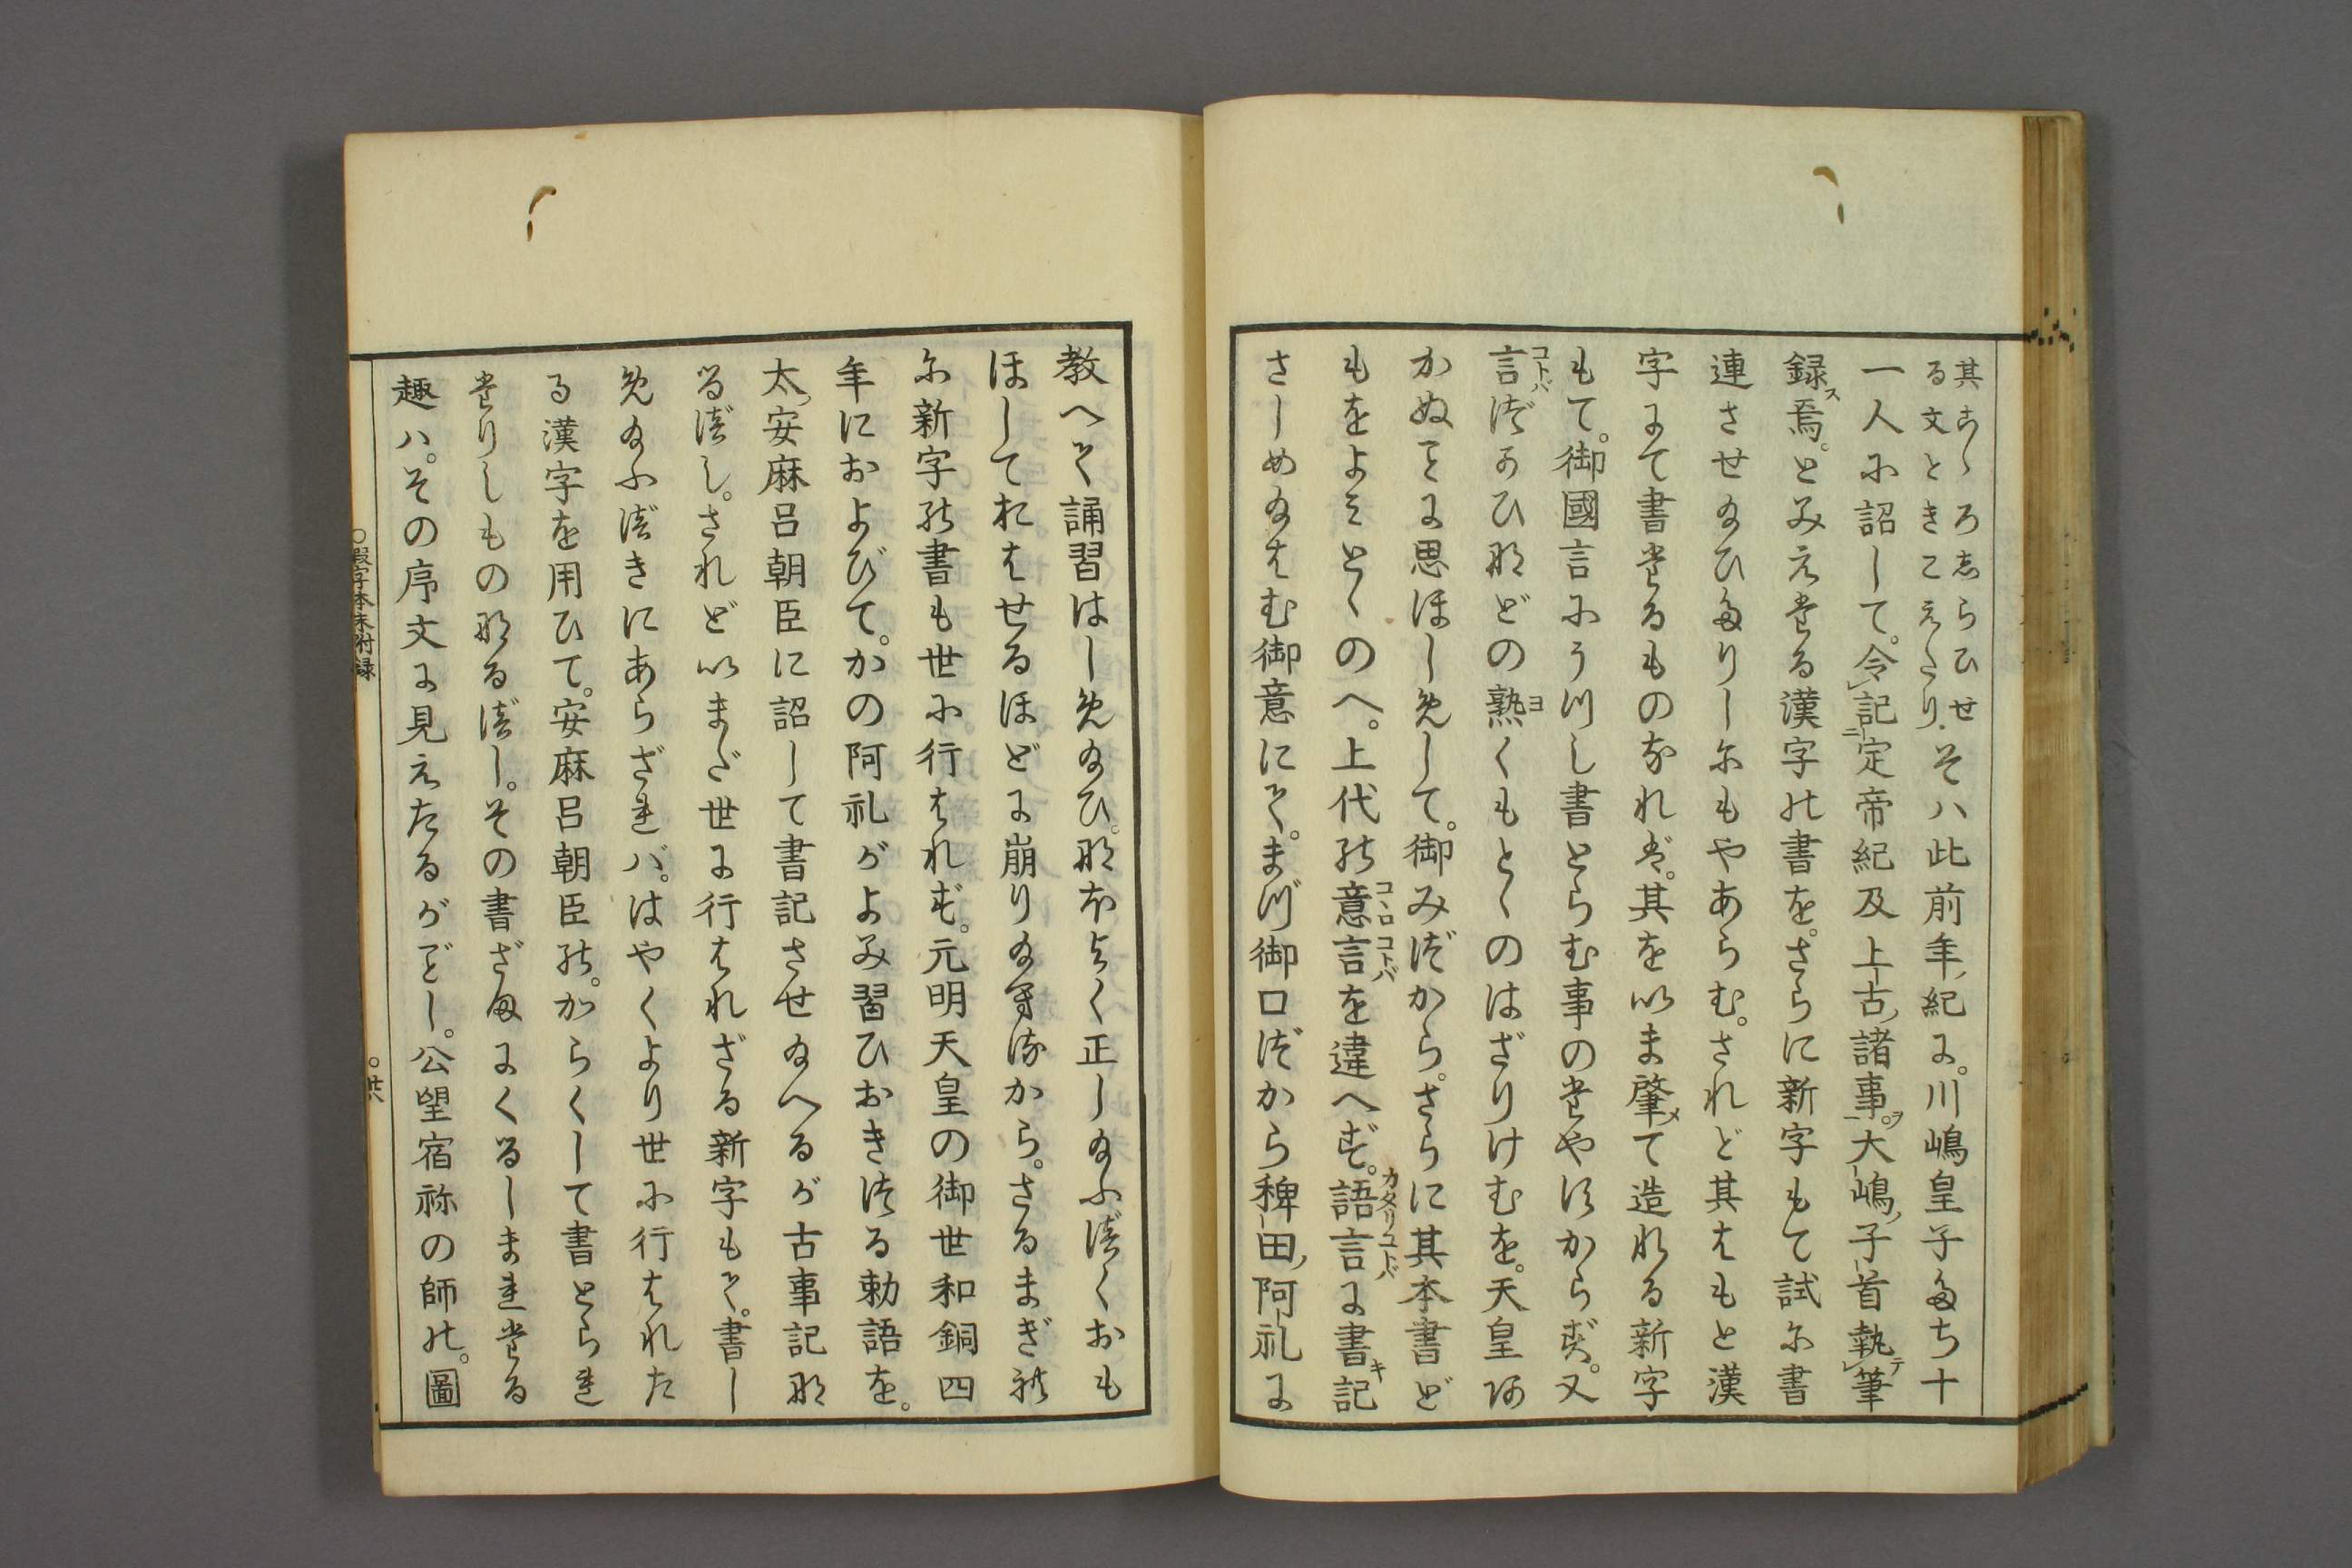 其こゝろしらひせ
る文ときこえたり
そハ此前年ノ紀に。川嶋皇子たち十
一人に詔して。令記定帝紀及上古ノ諸事ヲ。大嶋ノ子首執テ筆
録ス焉。とみえたる漢字の書を。さらに新字もて試に書
連させ給ひたりしにもやあらむ。されど其はもと漢
字にて書たるものなれば。其を以ま肇メて造れる新字
もて。御國言にうつし書とらむ事のたやすからず。又
言コトバづかひなどの熟ヨくもとゝのはざりけむを。天皇あ
かぬことに思ほしめして。御みづから。さらに其本書ど
もをよみとゝのへ。上代の意コヽロ言コトバを違へず。語言カタリコトバに書キ記
さしめ給はむ御意にて。まづ御口づから稗田ノ阿礼に
教へて誦習はしめ給ひ。なほよく正し給ふべくおも
ほしておはせるほどに崩り給ひぬるから。さるまぎれ
に新字の書も世に行はれず。元明天皇の御世和銅四
年におよびて。かの阿礼がよみ習ひおきつる勅語を。
太ノ安麻呂朝臣に詔して書記させ給へるが古事記な
るべし。されど以まだ世に行はれざる新字もて。書し
め給ふべきにあらざれバ。はやくより世に行はれた
る漢字を用ひて。安麻呂朝臣の。からくして書とられ
たりしものなるべし。その書ざまにくるしまれたる
趣ハ。その序文に見えたるがごとし。公望宿祢の師の。圖
○假字本末附録
○廿六